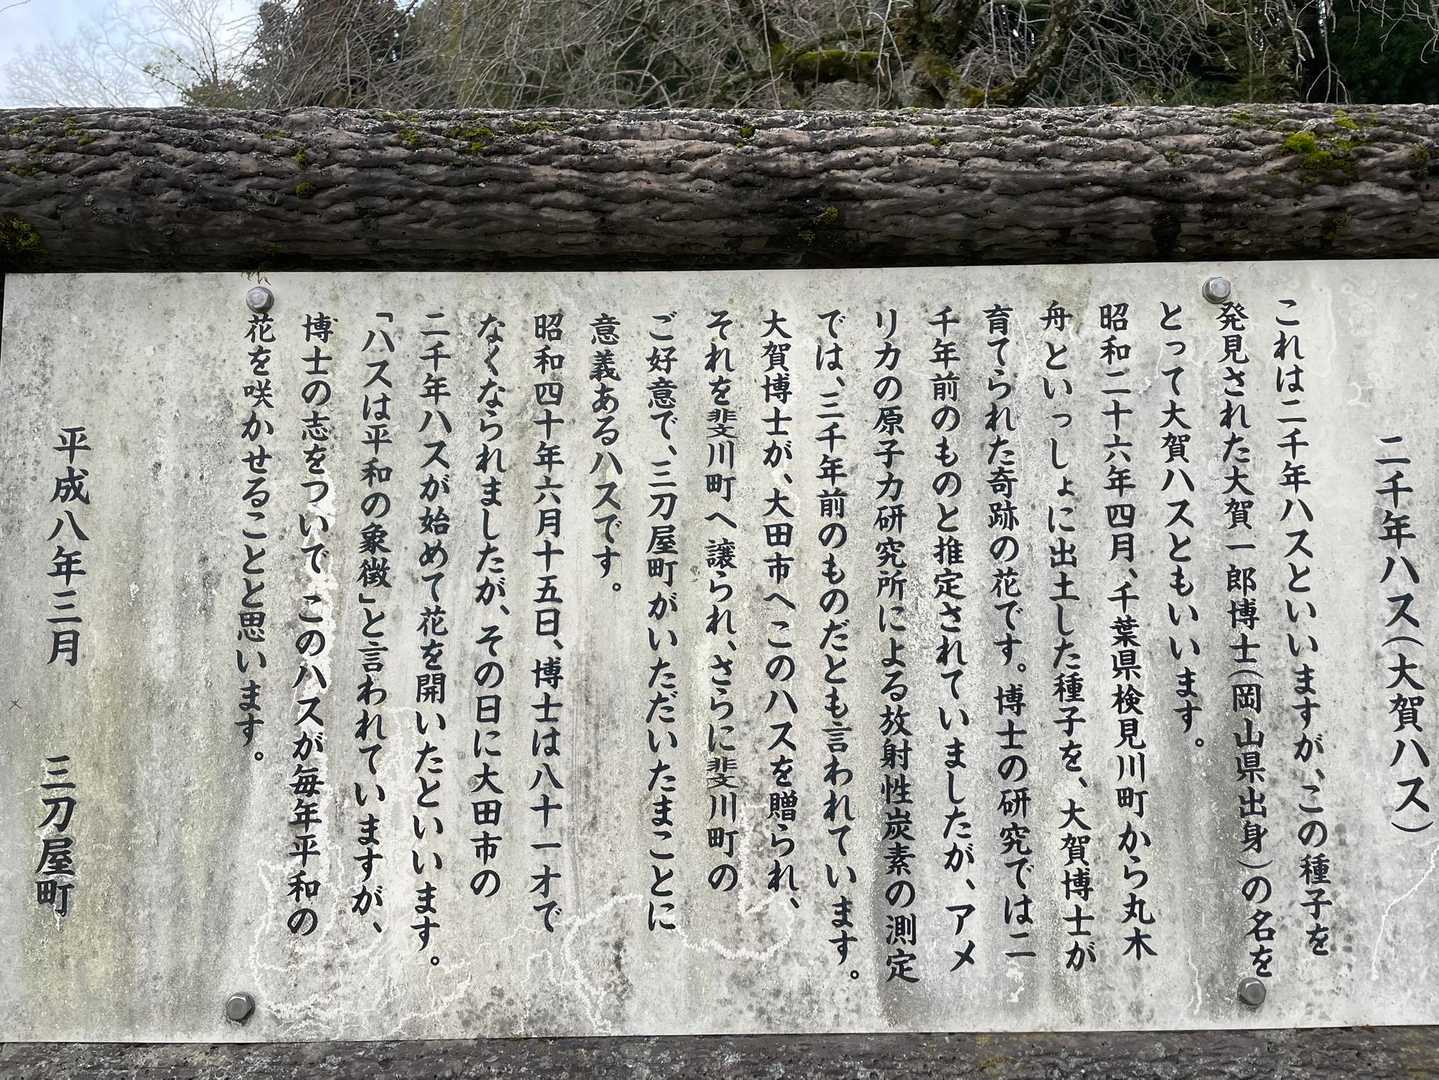 二千年ハス(大賀ハス)
これは二千年ハスといいますが、この種子を
発見された大賀一郎博士(岡山県出身)の名を
とって大賀ハスともいいます。
昭和二十六年四月、千葉県検見川町から丸木
舟といっしょに出土した種子を、大賀博士が
育てられた奇跡の花です。博士の研究では二
千年前のものと推定されていましたが、アメ
リカの原子力研究所による放射性炭素の測定
では、三千年前のものだとも言われています。
大賀博士が、大田市へこのハスを贈られ、
それを斐川町へ譲られ、さらに斐川町の
ご好意で、三刀屋町がいただいたまことに
意義あるハスです。
昭和四十年六月十五日、博士は八十一才で
なくなられましたが、その日に大田市の
二千年ハスが始めて花を開いたといいます。
「ハスは平和の象徴」と言われていますが、
博士の志をついで このハスが毎年平和の
花を咲かせることと思います。
平成八年三月 三刀屋町